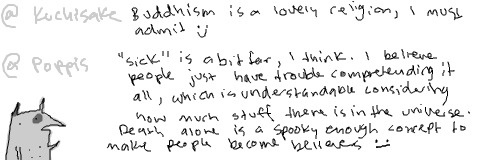 @ Kuchisake Buddhism is a lovely religion, I must
admit :)
@ Poppis "sick" is a bit far, I think. I believe
people just have trouble comprehending it
all, which is understandable considering
how much stuff there is in the universe.
Death alone is a spooky enough concept to
make people become believers :)